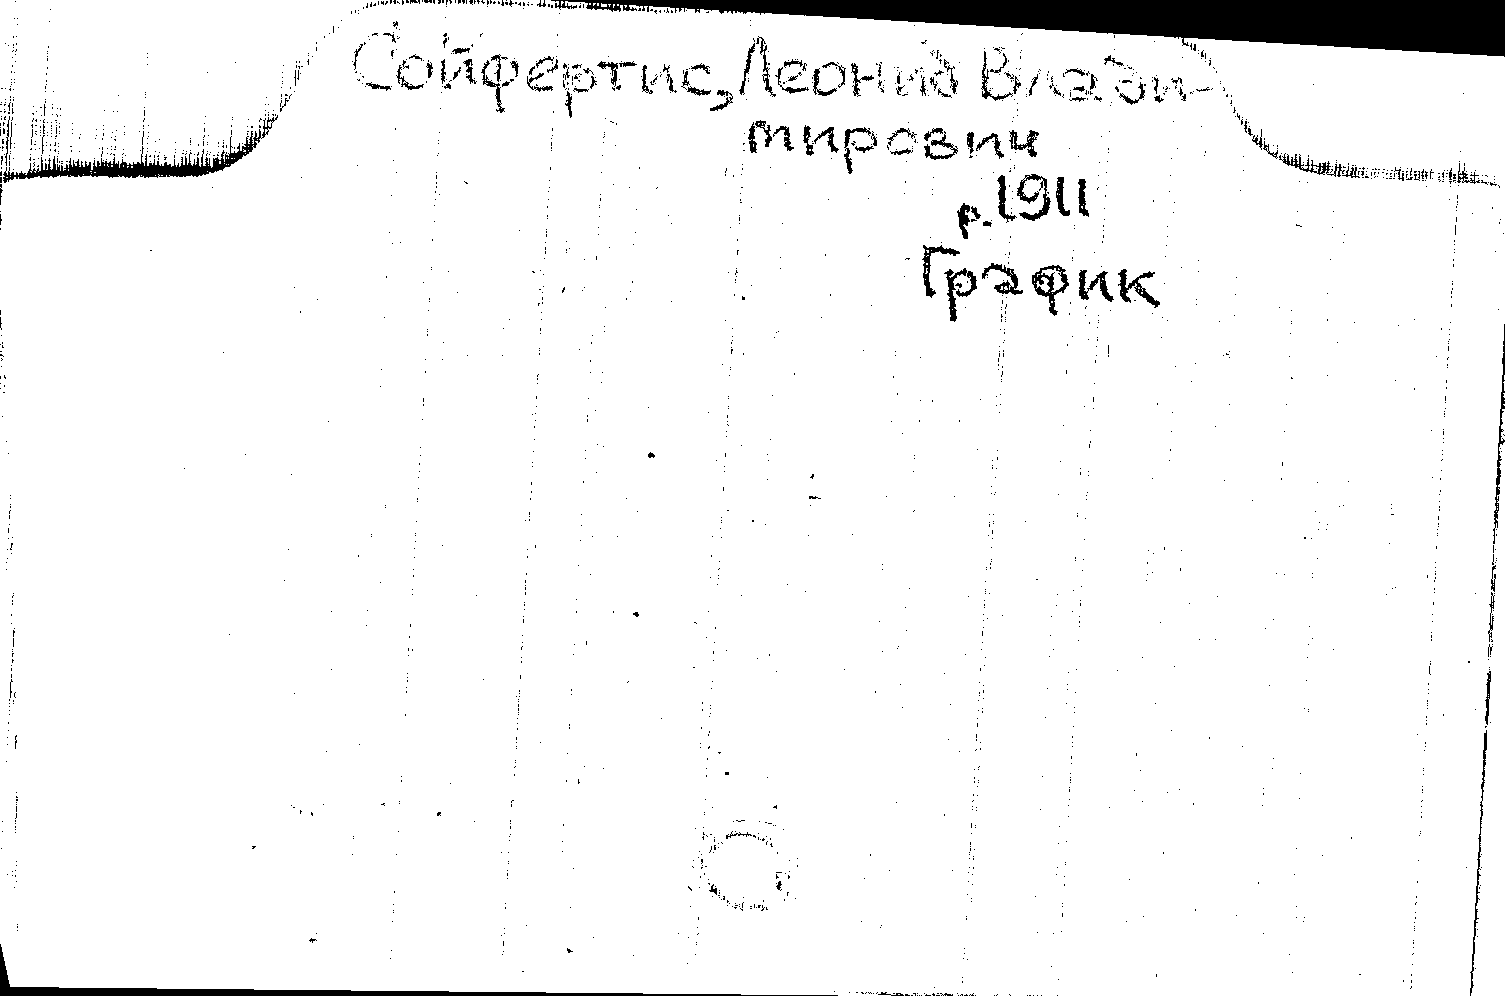 Сойфертис, Леонид Влади-
мирович
р. 1911
График